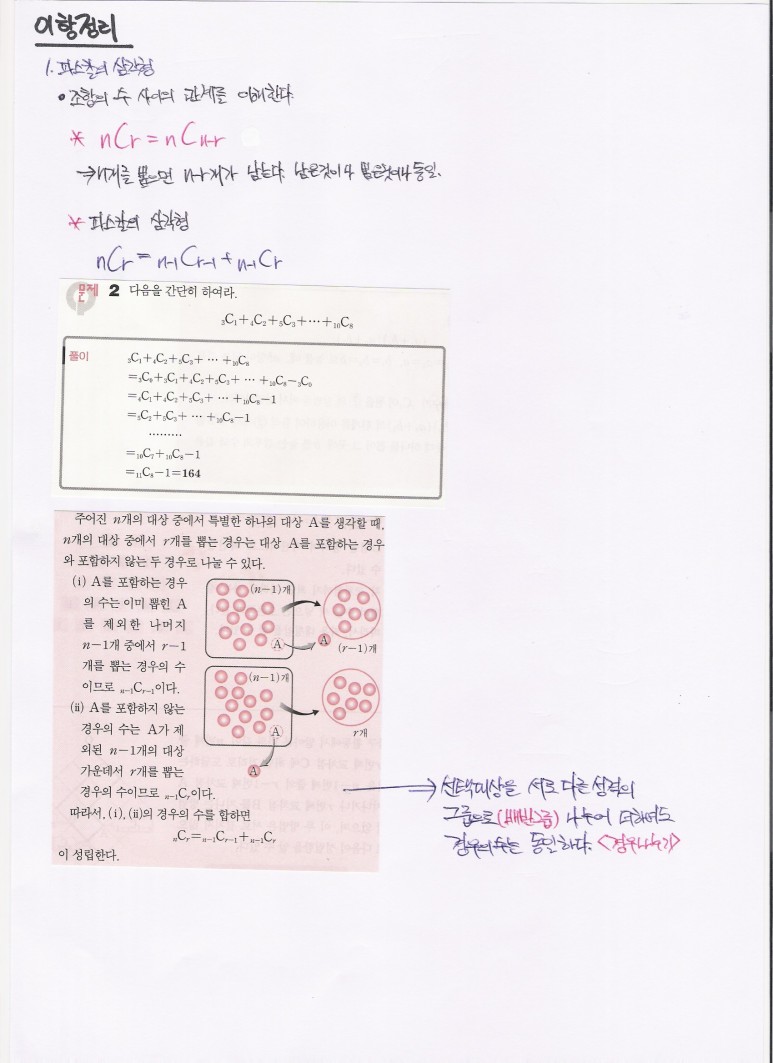 이항정리
1. 파스칼의 삼각형
• 조합의 수 사이의 관계를 이해한다.
* nCr = nCn-r
→ r개를 뽑으면 n-r개가 남는다. 남은것이나 뽑은것이나 동일.
* 파스칼의 삼각형
nCr = n-1Cr-1 + n-1Cr
문제 2 다음을 간단히 하여라.
₃C₁+₄C₂+₅C₃+⋯+₁₀C₈
풀이 ₃C₁+₄C₂+₅C₃+ ⋯ +₁₀C₈
=₃C₀+₃C₁+₄C₂+₅C₃+ ⋯ +₁₀C₈-₃C₀
=₄C₁+₄C₂+₅C₃+ ⋯ +₁₀C₈-1
=₅C₂+₅C₃+ ⋯ +₁₀C₈-1
⋯⋯⋯
=₁₀C₇+₁₀C₈-1
=₁₁C₈-1=164
주어진 n개의 대상 중에서 특별한 하나의 대상 A를 생각할 때,
n개의 대상 중에서 r개를 뽑는 경우는 대상 A를 포함하는 경우
와 포함하지 않는 두 경우로 나눌 수 있다.
(i) A를 포함하는 경우
의 수는 이미 뽑힌 A
를 제외한 나머지
n-1개 중에서 r-1
개를 뽑는 경우의 수
이므로 n-1Cr-1이다.
(n-1)개
A
A
(r-1)개
(ii) A를 포함하지 않는
경우의 수는 A가 제
외된 n-1개의 대상
가운데서 r개를 뽑는
경우의 수이므로 n-1Cr이다.
(n-1)개
A
r개
A
따라서, (i), (ii)의 경우의 수를 합하면
nCr=n-1Cr-1+n-1Cr
이 성립한다.
⇒ 선택대상을 서로 다른 성격의
그룹으로 (배반그룹) 나누어 더해도
경우의 수는 동일하다. <경우나누기>